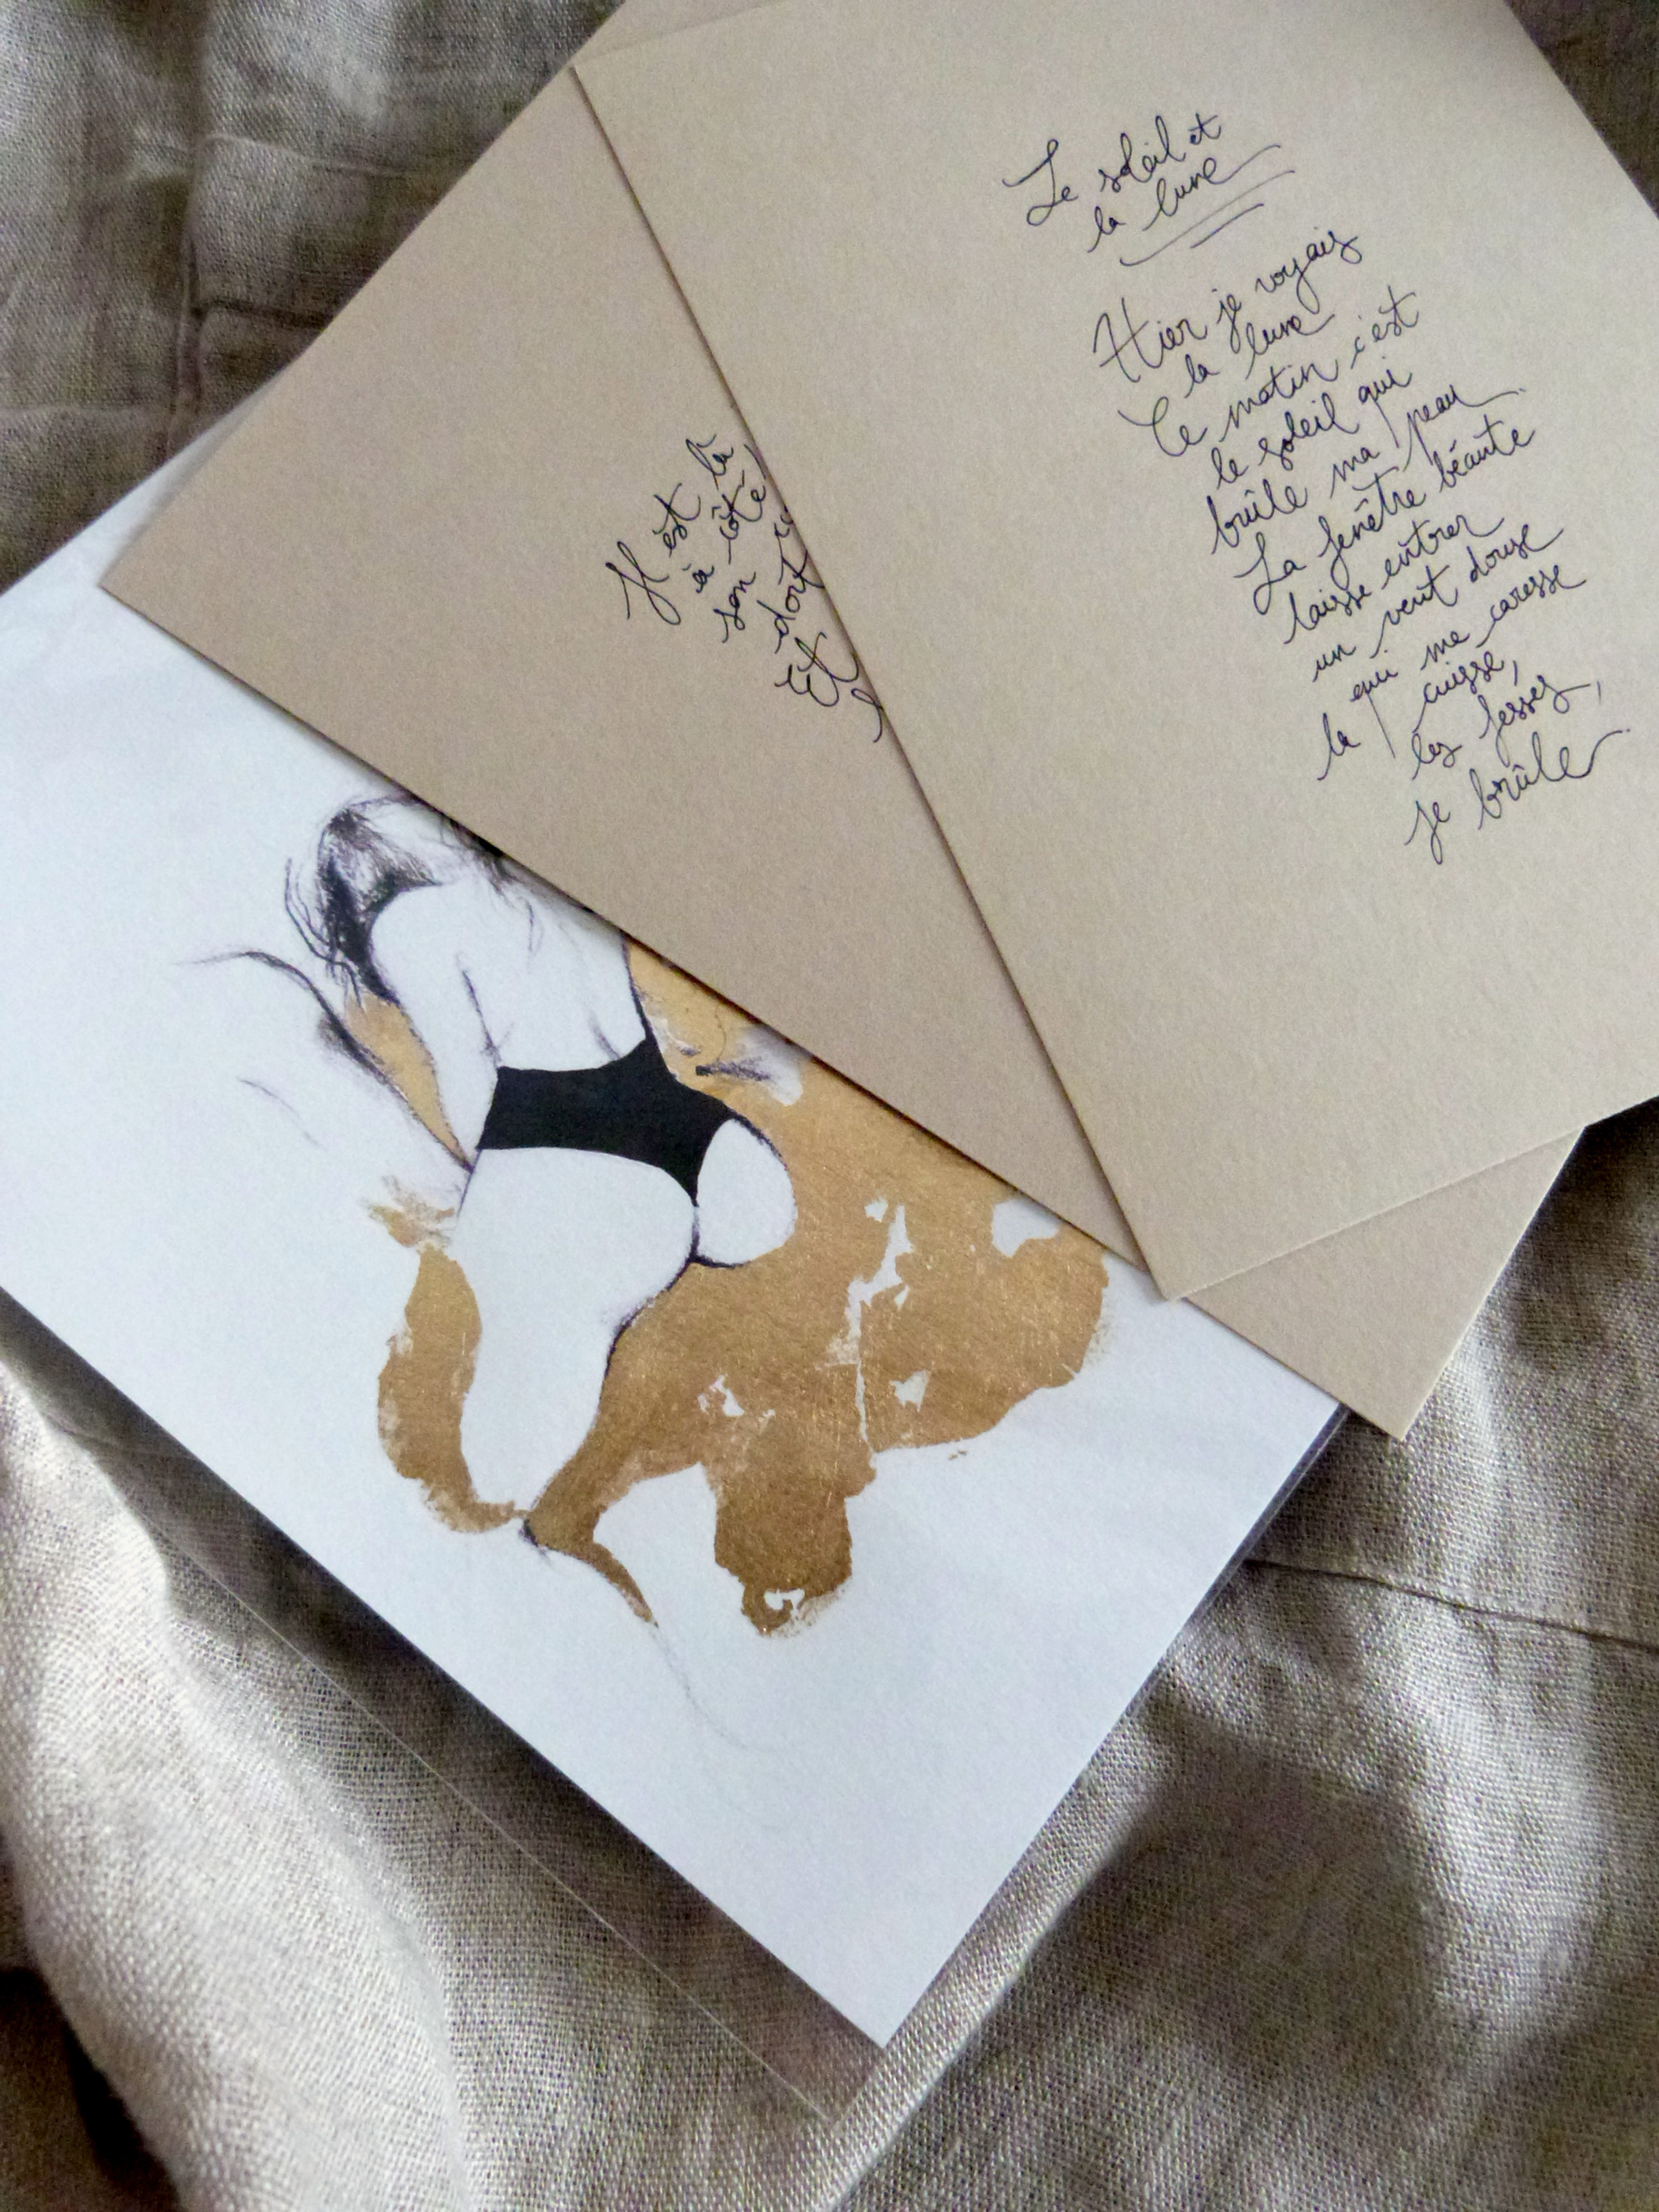 Le soleil et
la lune
Hier je voyais
la lune
Ce matin c'est
le soleil qui
brûle ma peau
La fenêtre béante
laisse entrer
un vent douse
qui me caresse
la cuisse,
les fesses,
je brûle
Il est là
à côté,
son
dort
Et